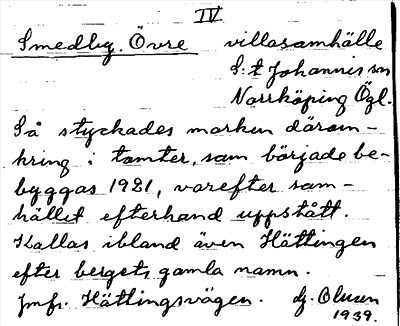 IV
Smedby. Övre villasamhälle
S:t Johannis sn
Norrköping Ögl.
Så styckades marken därom-
kring i tomter, som började be-
byggas 1921, varefter sam-
hället efterhand uppstått.
Kallas ibland även Hättingen
efter bergets gamla namn.
Jmfr. Hättingsvägen. dj. Olusen
1939.